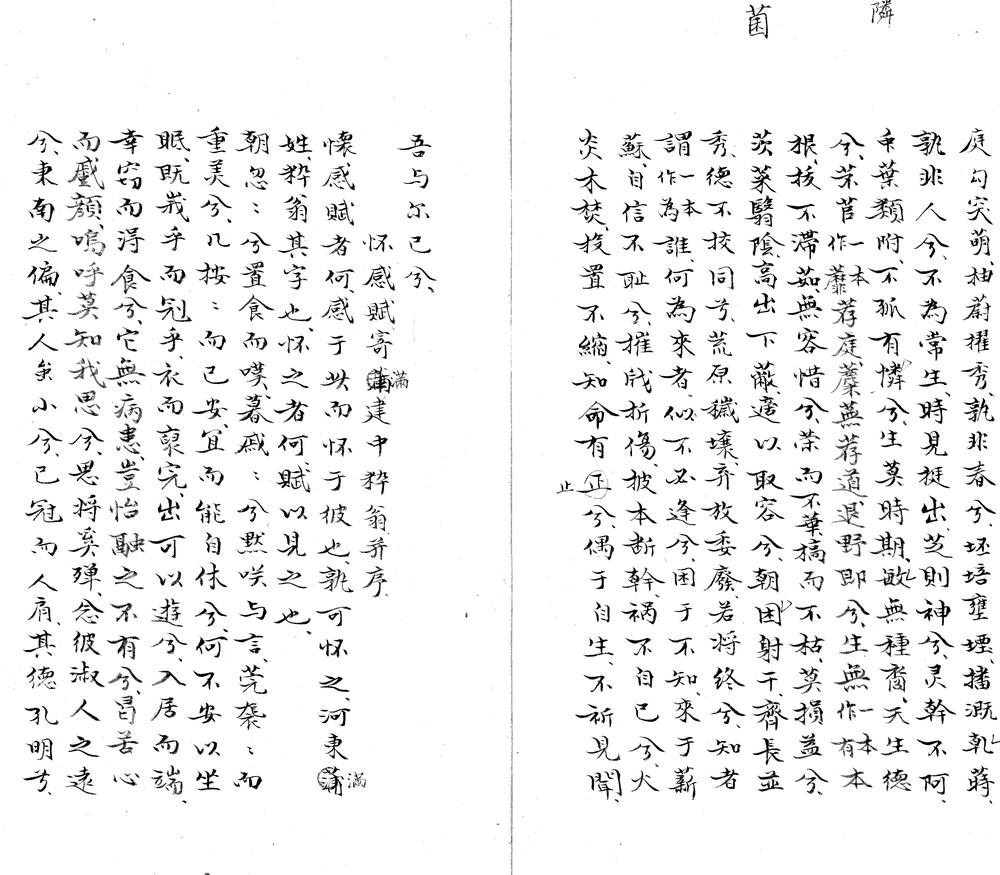 隣
菌
庭勾突萌、抽蔚擢秀、孰非春兮、坯培壅堙、播溉乹蒔、
孰非人兮、不為常生、時見挺出、芝則神兮、灵幹不阿、
千葉類附、不孤有憐兮、生莫時期、敏無種裔、天生德
兮、芣苢一本作蘼荐庭、蘪蕪荐道、退野即兮、生無一本作有本
根、拔不滯茹、無容惜兮、荣而不華、槁而不枯、莫損益兮、
茨菉翳陰、高出下蔽、適以取容兮、朝困射干、齊長並
秀、德不挍同兮、荒原穢壤、弃放委廢、若將終兮、知者
謂一本作為誰、何為來者、似不必逢兮、困于不知、來于薪
蘇、自信不耻兮、摧戕折傷、披本断幹、禍不自已兮、火
炎木焚、投置不縮、知命有正止兮、偶于自生、不祈見聞、
吾与尔已兮、
怀感賦寄蒲滿建中粹翁并序
懐感賦者何、感于此而怀于彼也、孰可怀之、河東蒲滿
姓、粹翁其字也、怀之者何、賦以見之也、
朝忽〻兮置食而嘆、暮戚〻兮黙咲与言、莞袭〻而
重美兮、几按〻而已安、宜而能自休兮、何不安以坐
眠、既峩乎而冠乎、衣而裒完、出可以遊兮、入居而端、
幸窃而淂食兮、它無病患、豈怡融之不有兮、曷苦心
而蹙顔、嗚呼莫知我思兮、思将奚殫、念彼淑人之遠
兮、東南之偏、其人矣小兮、已冠而人肩、其德孔明兮、